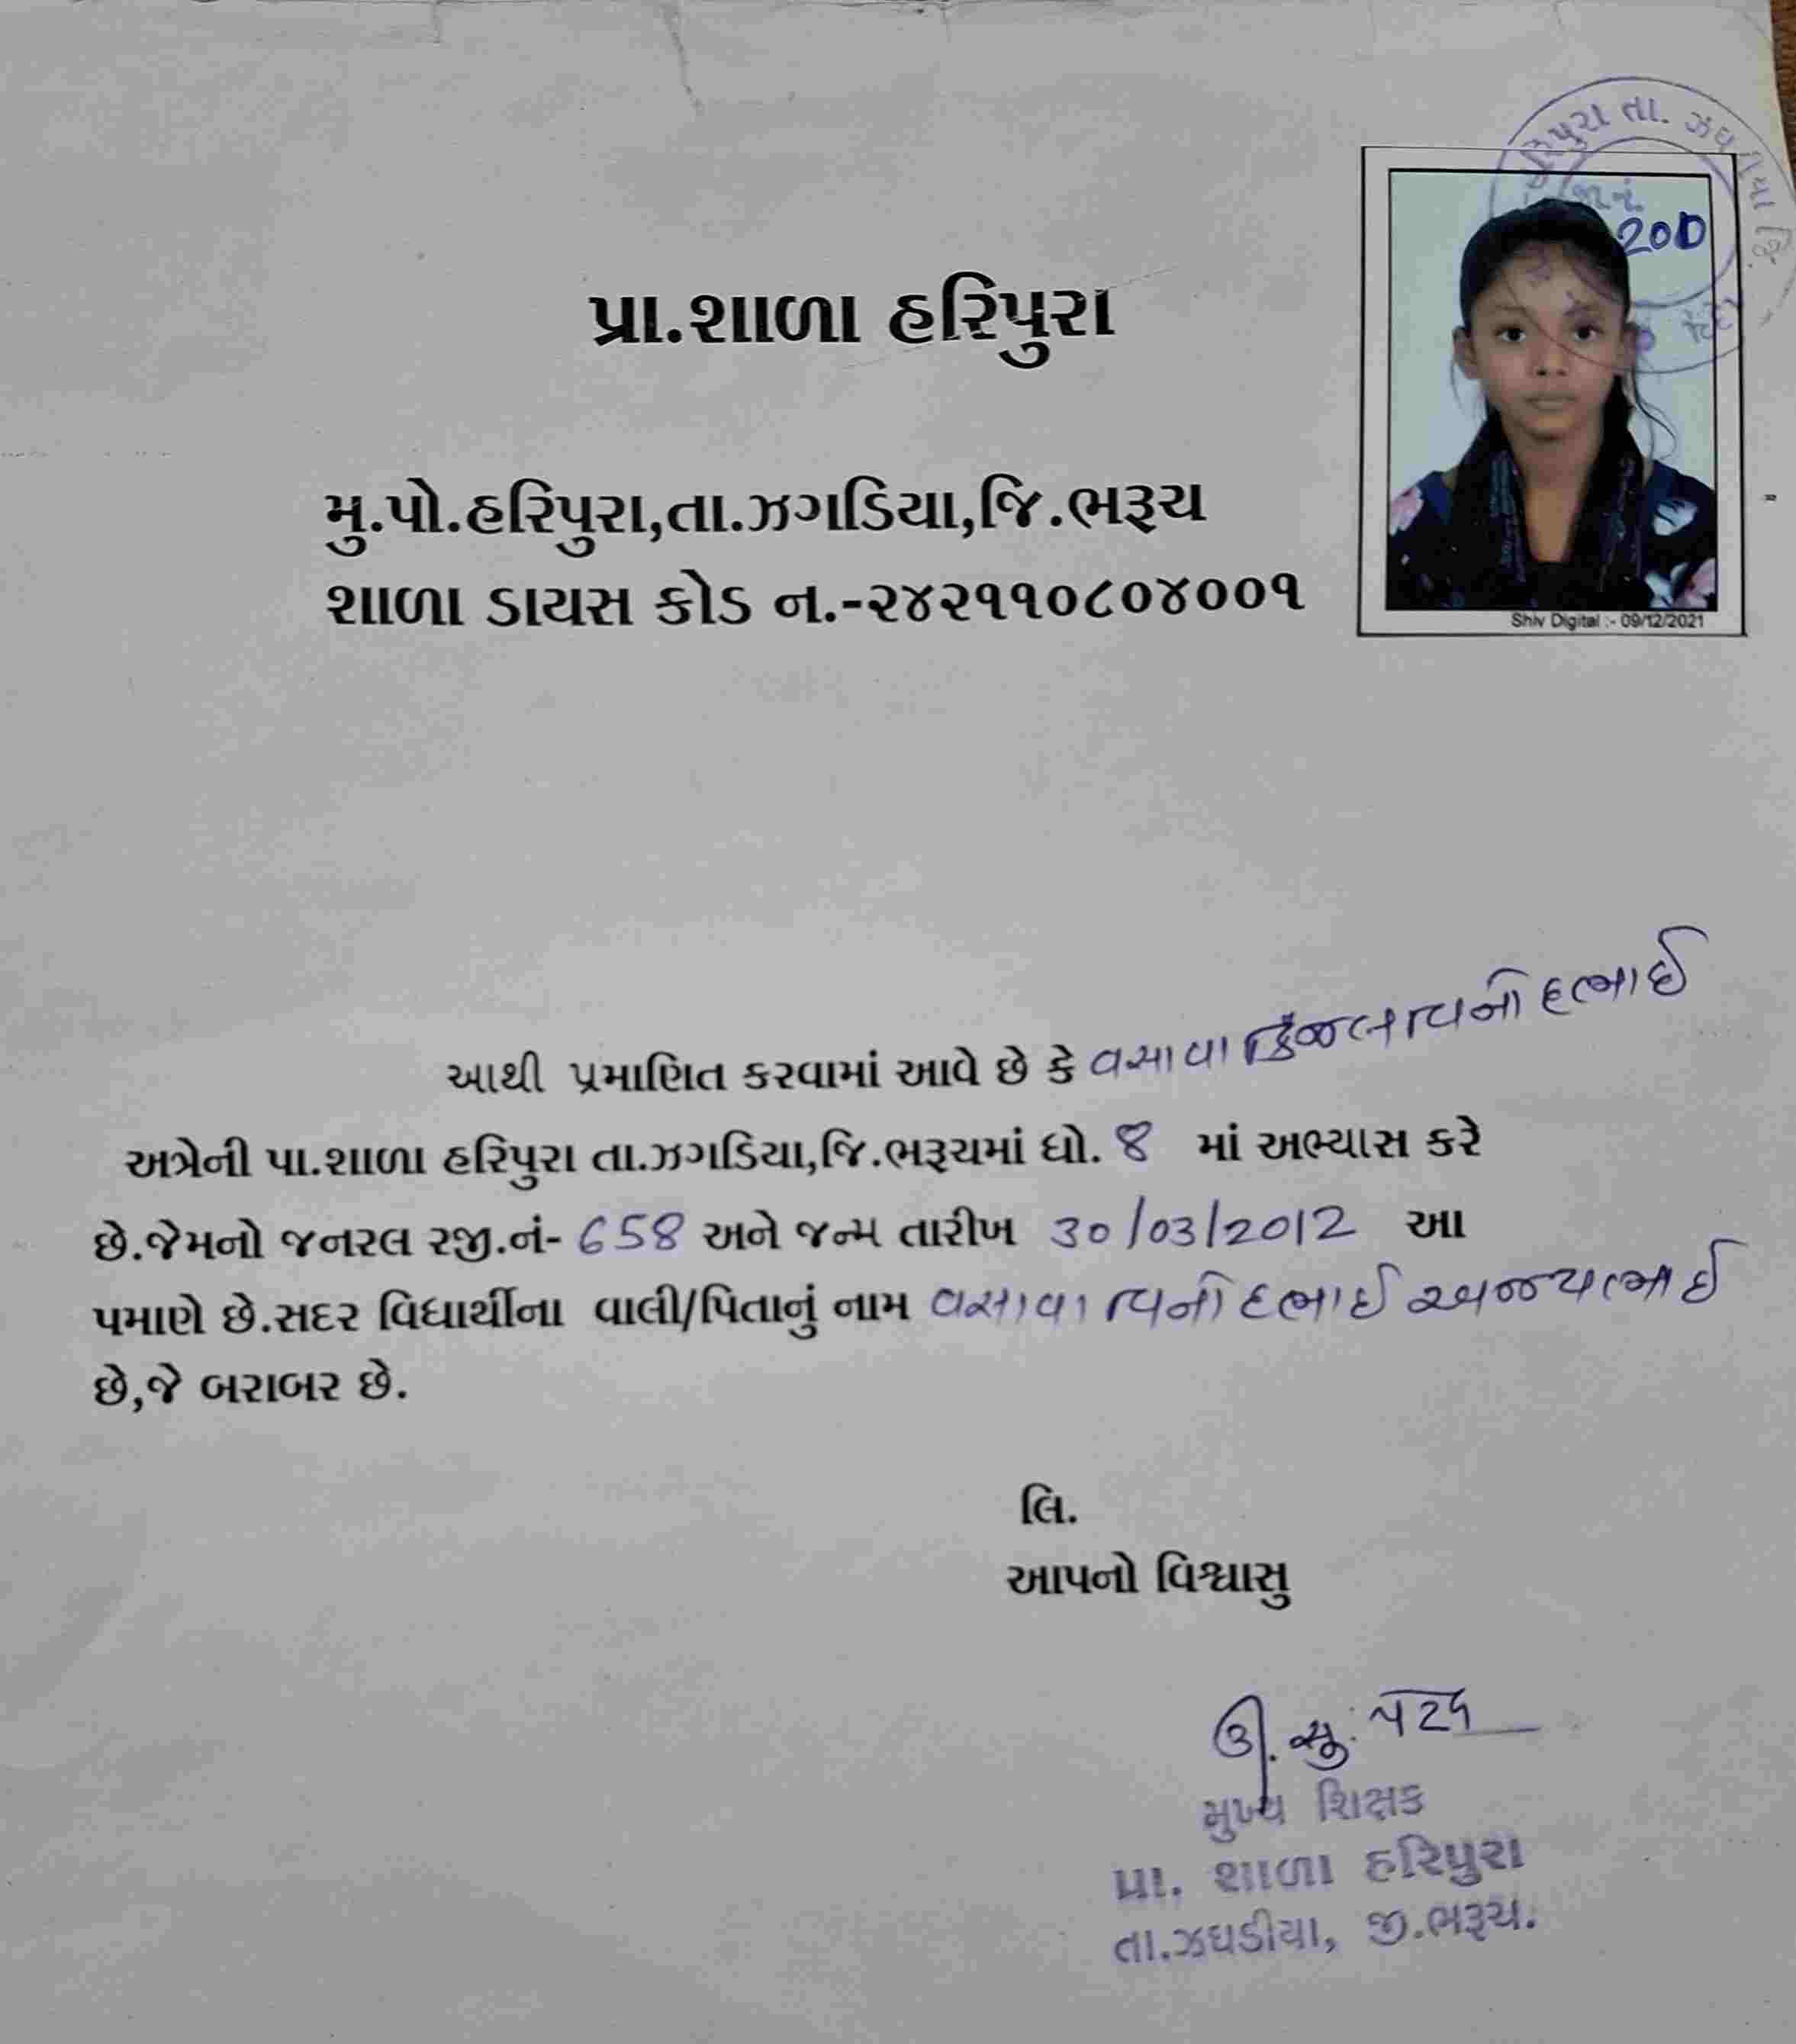 પુરા તા. ઝઘ
જા.નં.
200
Shiv Digital :- 09/12/2021
પ્રા.શાળા હરિપુરા
મુ.પો.હરિપુરા,તા.ઝગડિયા,જિ.ભરૂચ
શાળા ડાયસ કોડ ન.-૨૪૨૧૧૦૮૦૪૦૦૧
આથી પ્રમાણિત કરવામાં આવે છે કે વસાવા કિંજલ
અત્રેની પા.શાળા હરિપુરા તા.ઝગડિયા,જિ.ભરૂચમાં ધો. 8 માં અભ્યાસ કરે
છે.જેમનો જનરલ રજી.નં- 658 અને જન્મ તારીખ 30/03/2012 આ
પમાણે છે.સદર વિધાર્થીના વાલી/પિતાનું નામ વસાવા અજયભાઈ
છે,જે બરાબર છે.
લિ.
આપનો વિશ્વાસુ
મુખ્ય શિક્ષક
પ્રા. શાળા હરિપુરા
તા.ઝઘડીયા, જી.ભરૂચ.